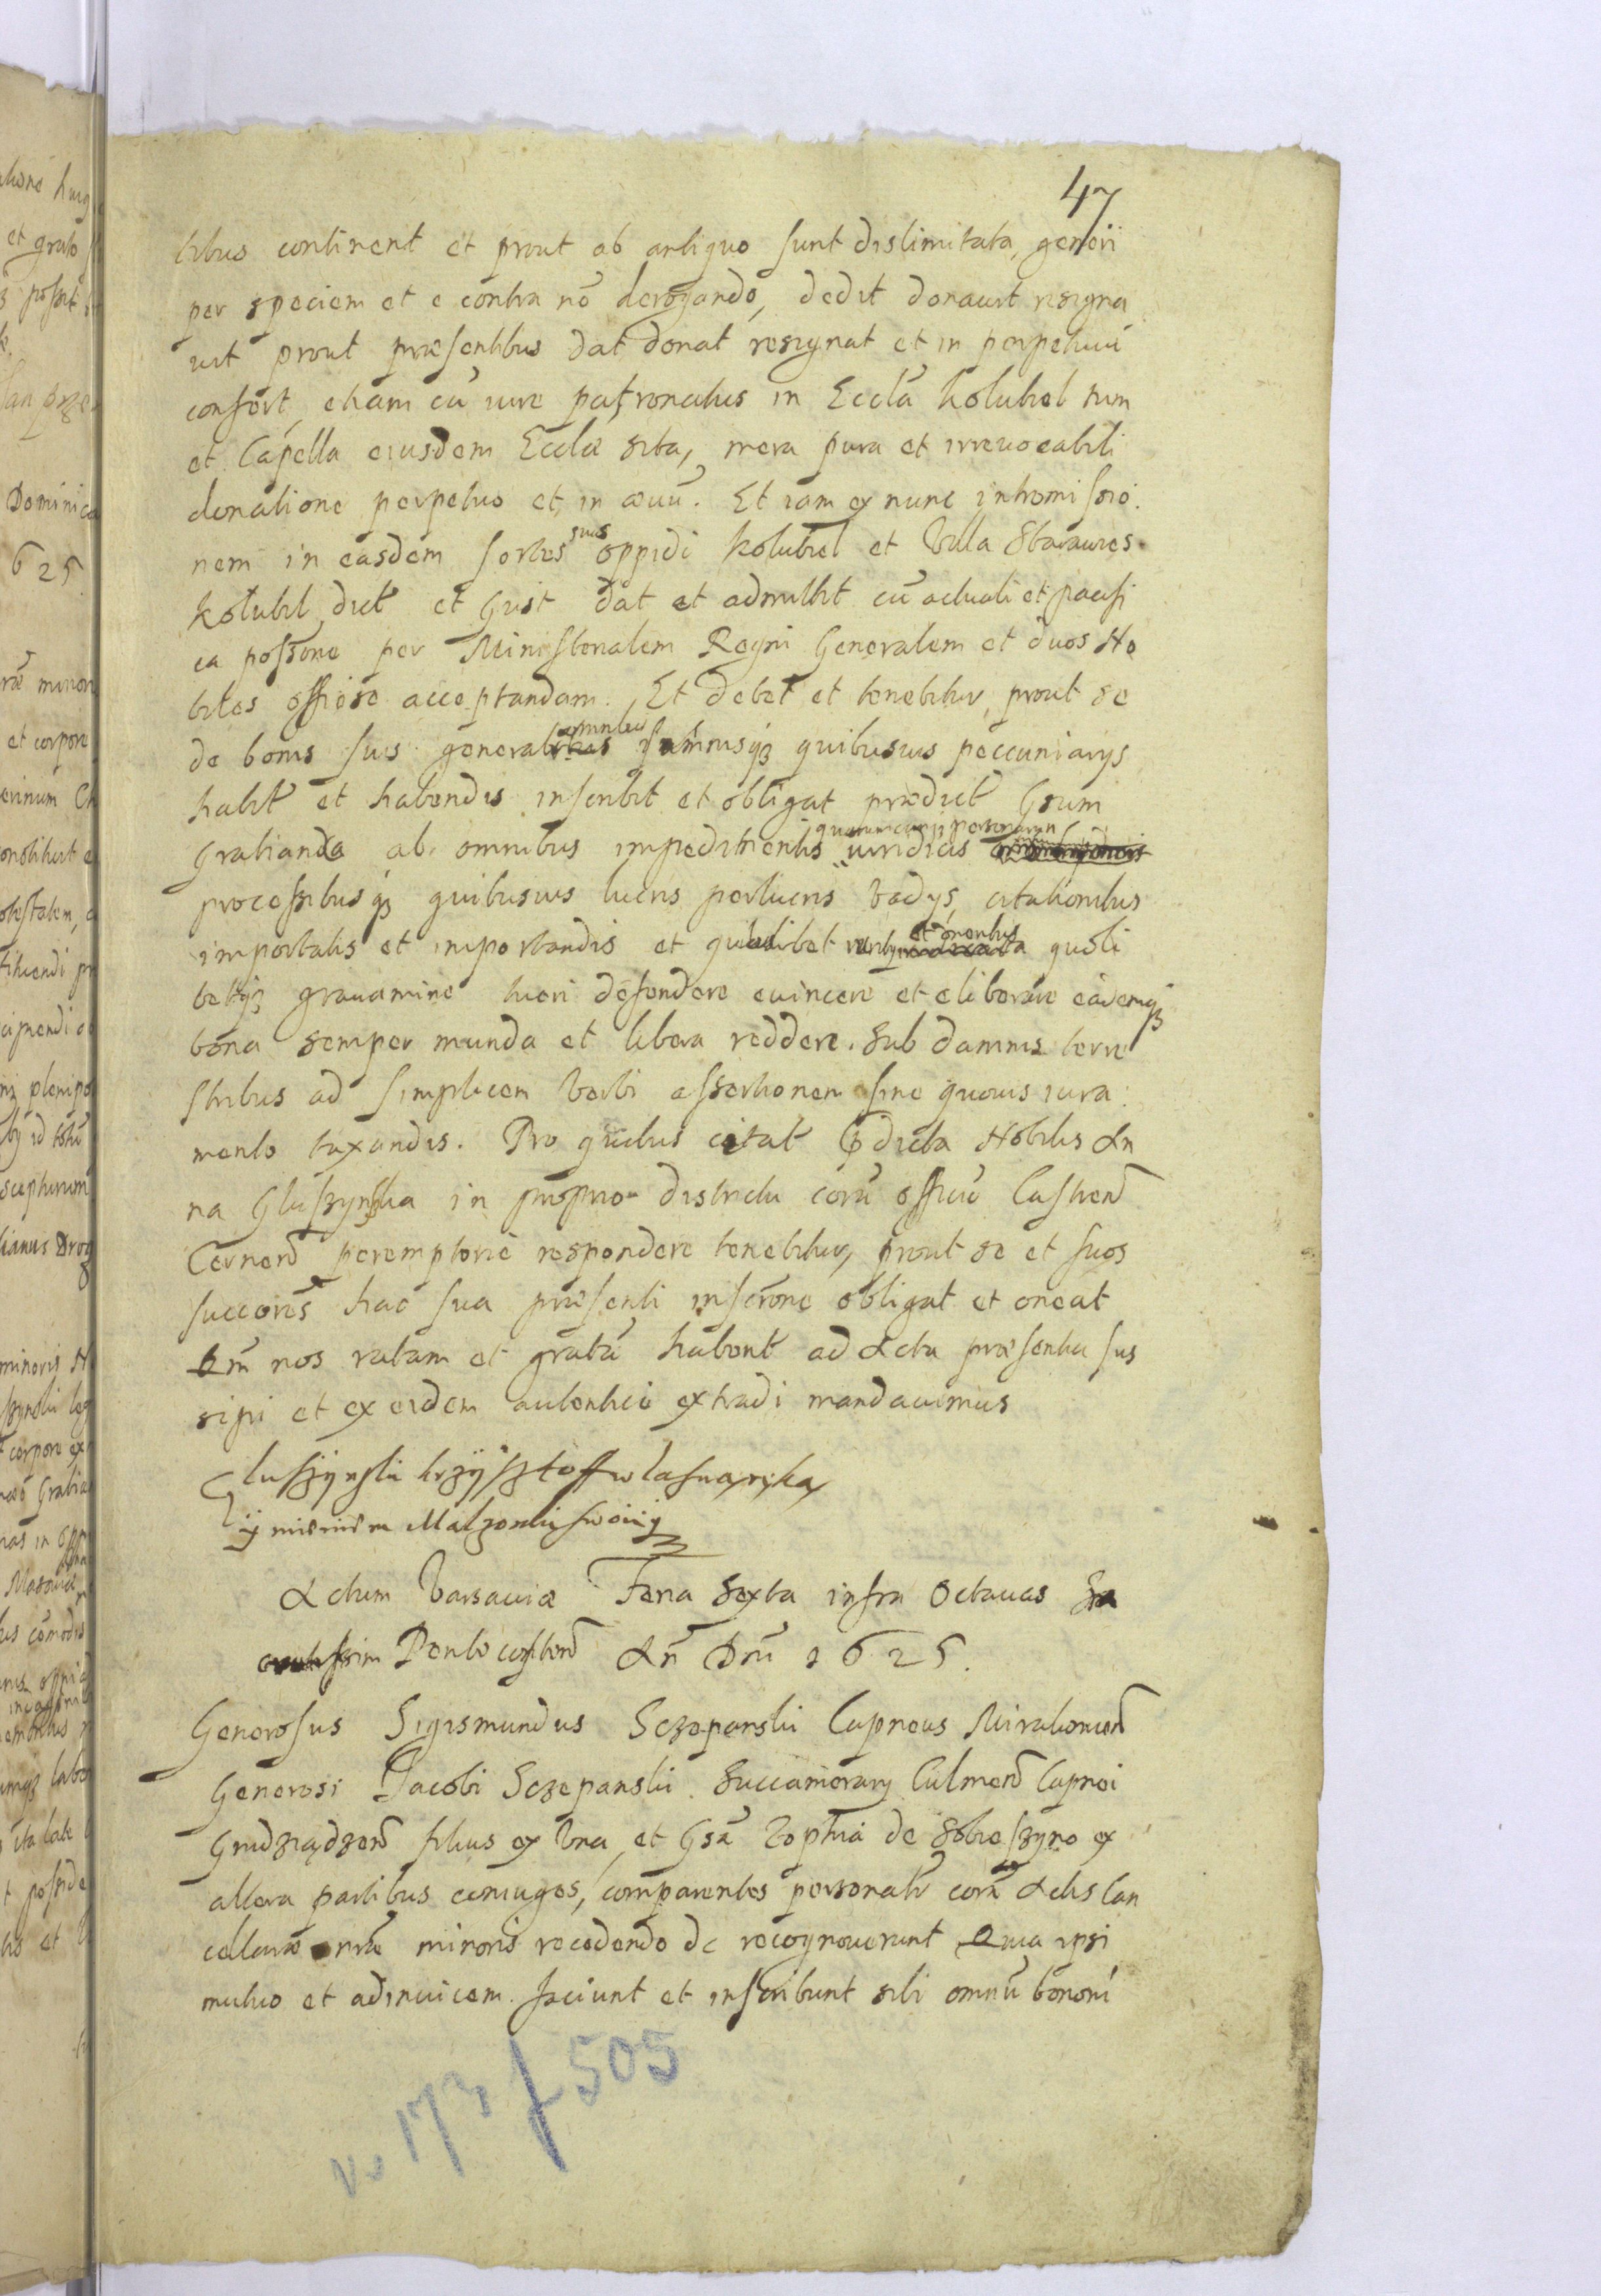 47
libus continent et prout ab antiquo sunt dislimitata, generi
per speciem et e contra nō derogando, dedit donauit resigna
uit prout præsentibus dat donat resignat et in perpetuū
confert, etiam cū iure patronatus in Eccla Kolubiel tum
et Capella eiusdem Ecclæ sita, mera pura et irreuocabili
donatione perpetuo et in æuū. Et iam ex nunc intromissio:
nem in easdem sortes suas oppidi Kolubiel et Villa Starawies
Kolubiel dict et Gust dat et admittit cū actuali et pacifi
ca possone per Ministerialem Regni Generalem et duos No
biles offiose acceptandam. Et debet et tenebitur, prout se
de bonis suis generalibus omnibus summisq3 quibusuis peccuniarys
habit et habendis inscribit et obligat prædict Gsum
Gratianū ab omnibus impedimentis quarumcunq3 personarum iuridicis
processibusq3 quibusuis lucris perlucris vadys, citationibus
importatis et importandis et quolibet et oneribus quoli
betq3 grauamine tueri defendere euincere et eliberare eademq3
bona semper munda et libera reddere. Sub damnis terre
stribus ad simplicem verbi assertionem sine quouis iura:
mento taxandis. Pro quibus citat dicta Nobilis An
na Gluszynska in proprio districtu corā officio Castren
Cernen peremptorie respondere tenebitur, prout se et suos
succores hac sua præsenti inscrone obligat et oneat
Qm nos ratam et gratā habent ad Acta præsentia sus
cipi et ex eisdem autentice extradi mandauimus
Gluszynski krzysztoff wlasna ręka
ÿ mieniem Malzonki swoiÿ
Actum Varsauiæ Feria Sexta infra Octauas Sa
Pentecosten An Dni 1625.
Generosus Sigismundus Sczepanski Capneus Mirachouien
Generosi Jacobi Sczepanski Succamerary Culmen Capnei
Grudziądzen filius ex Vna et Gsā Zophia de Sobieszyno ex
altera partibus coniuges, comparentes personalr corā Actis Can
cellariæ nræ minoris recedendo dc recognouerunt Quia ipsi
mutuo et adinuicem faciunt et inscribunt sibi omniū bonorū
v. 173 f 505